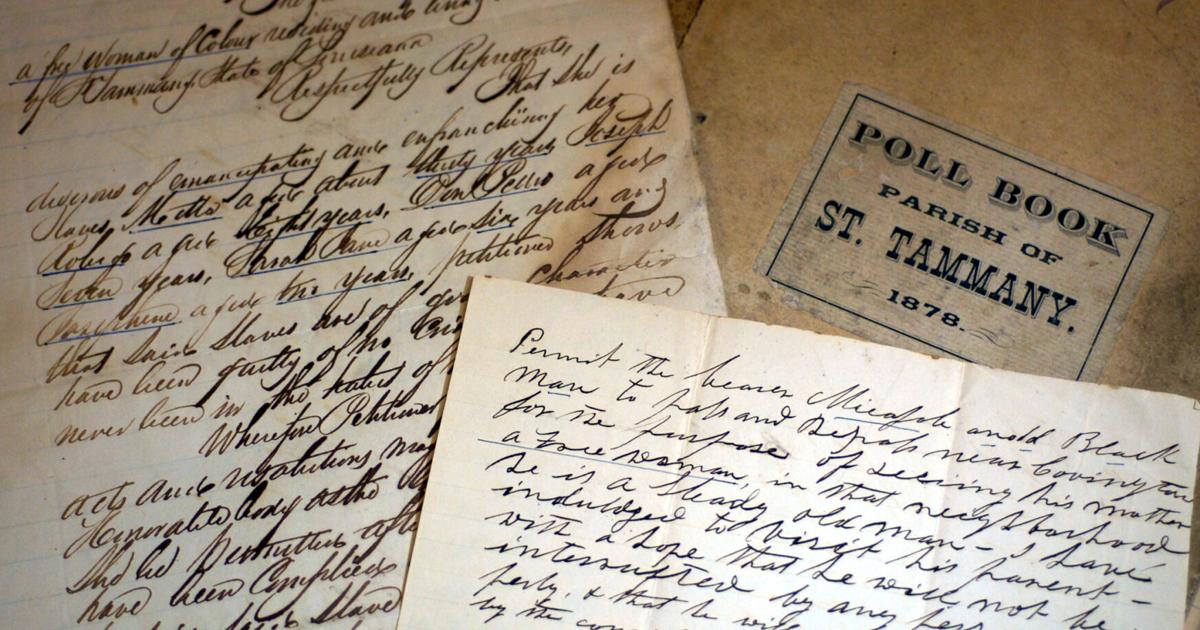 a free Woman of Colour residing and living
of St Tammany, State of Louisiana
Respectfully Represents,
That she is
desirous of emancipating and enfranchising her
slaves, aged about thirty years Joseph
aged Eight years, Don Pedro aged
Seven years, Sarah Jane aged six years and
aged two years, petitioned shows
that said Slaves are of character
have been guilty of no have
never been in the habits of
Wherefore Petitioner
acts and resolutions may
Honorable body as the
She be permitted
have been Complied
Slave
POLL BOOK
PARISH OF
ST. TAMMANY.
1878.
Permit the bearer Micajah an old Black
man to pass and repass near Covington
for the purpose of seeing his mother
a free woman, in that neighborhood
he is a steady old man - I have
indulged to visit his parent -
with a hope that he will not be
interrupted by any
& that he will
by the